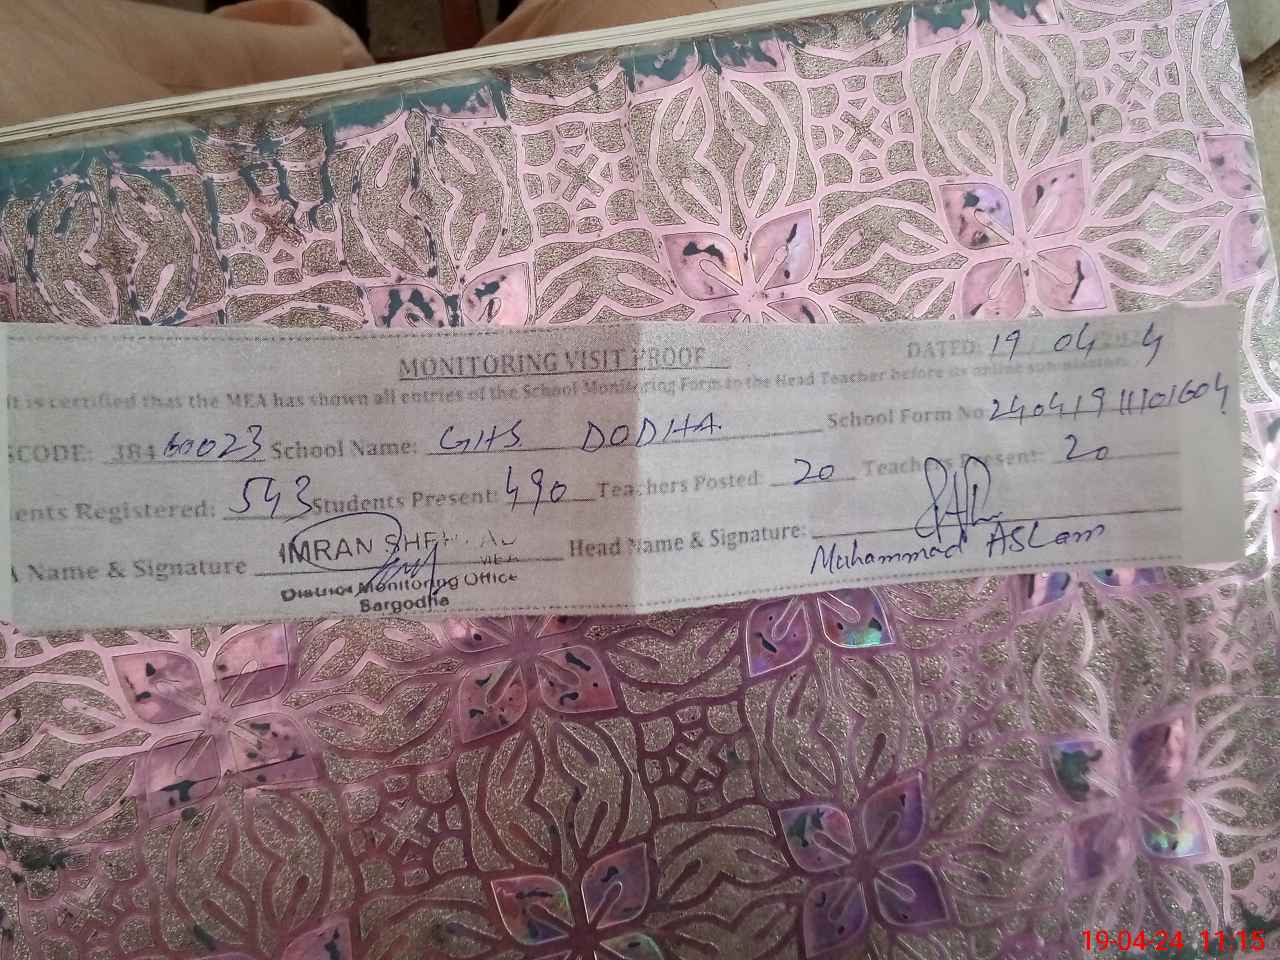 MONITORING VISIT PROOF
DATED: 19 04 4
It is certified that the MEA has shown all entries of the School Monitoring Form to the Head Teacher before its online submission.
SCODE: 38460023 School Name: GHS DODHA School Form No 24041911101604
ents Registered: 543 Students Present: 490 Teachers Posted: 20 Teachers Present: 20
Name & Signature IMRAN Head Name & Signature:
Muhammad ASLam
District Monitoring Office
Sargodha
19-04-24 11:15